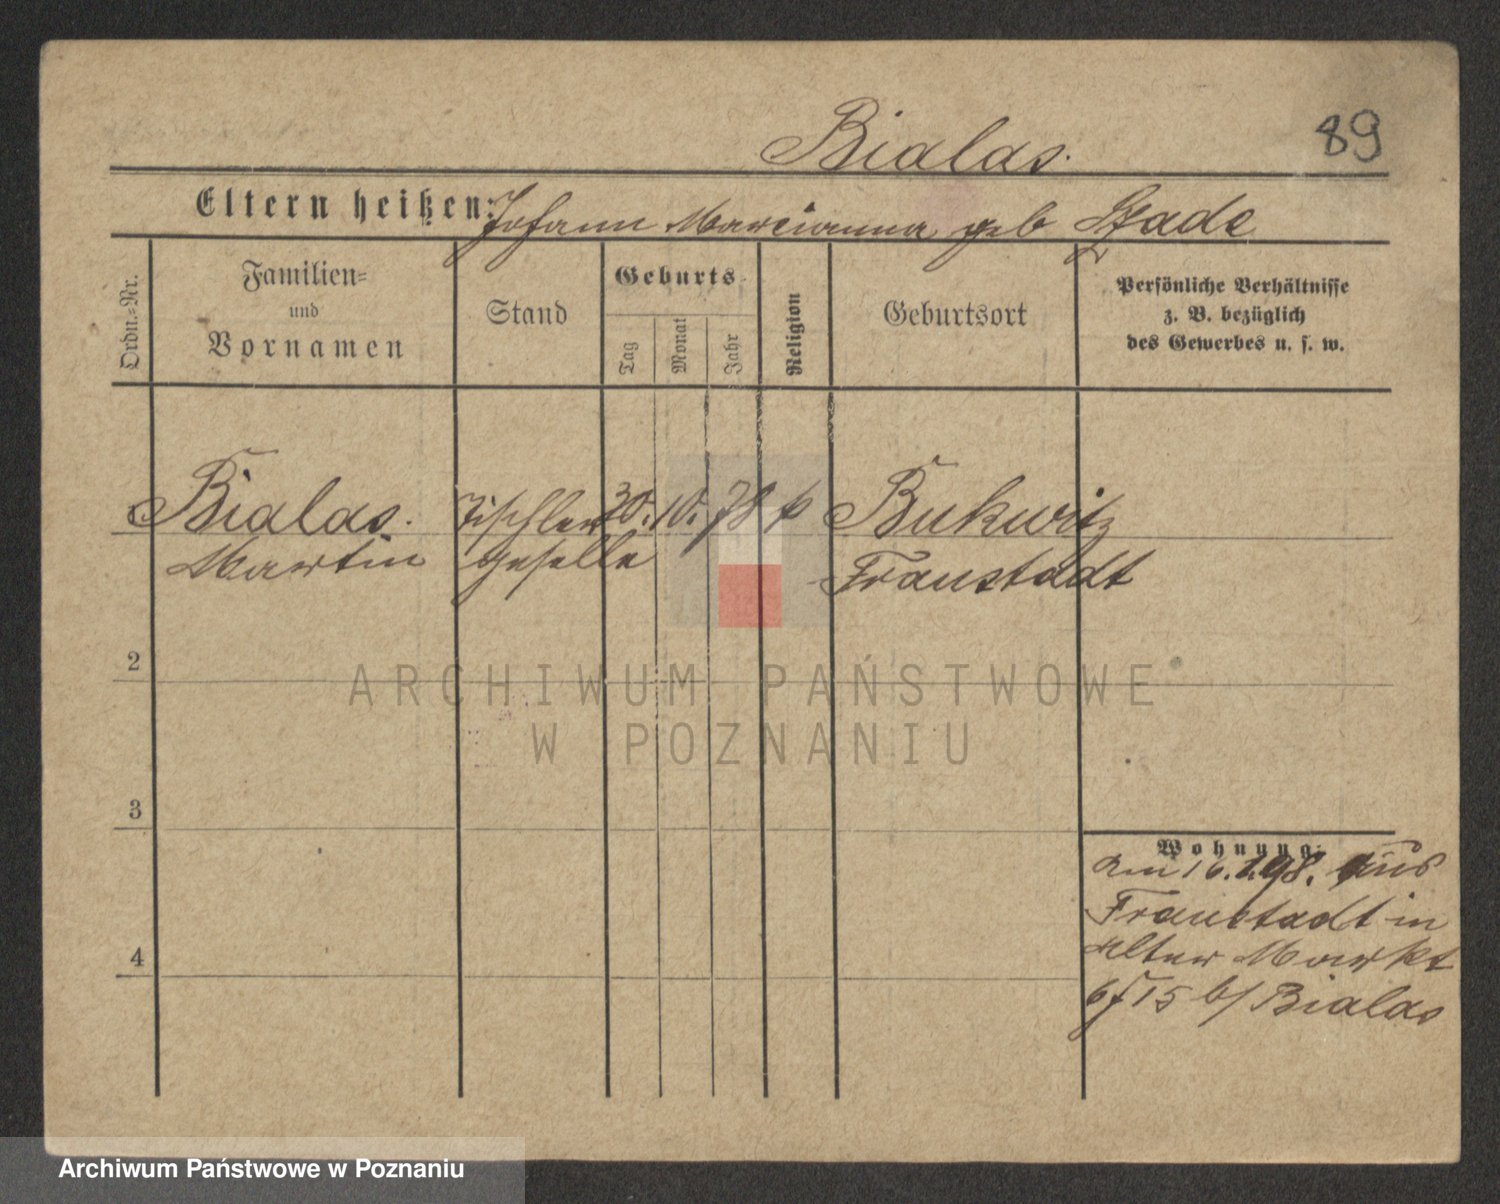 Bialas.
89
Eltern heißen: Johann Marcianna geb
Ordn.-Nr.
Familien-
und
Vornamen
Stand
Geburts
Tag
Monat
Jahr
Religion
Geburtsort
Persönliche Verhältnisse
z. B. bezüglich
des Gewerbes u. s. w.
Bialas. Tischler 30. 10. 78 k Bukwitz
Martin geselle Fraustadt
2
ARCHIWUM PAŃSTWOWE
W POZNANIU
3
Wohnung:
am 16. 98. aus
Fraustadt in
Alter Markt
15 b/ Bialas
4
Archiwum Państwowe w Poznaniu